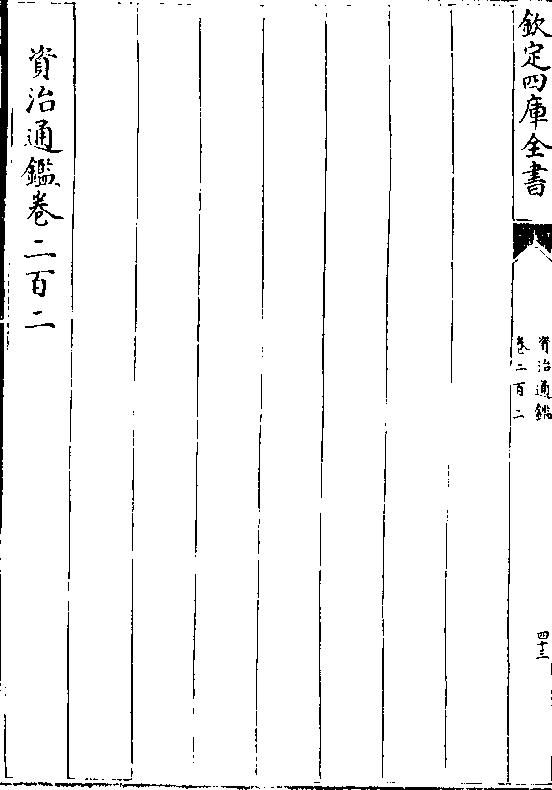 欽定四庫全書
資治通鑑
卷二百二
四十三
資治通鑑卷二百二